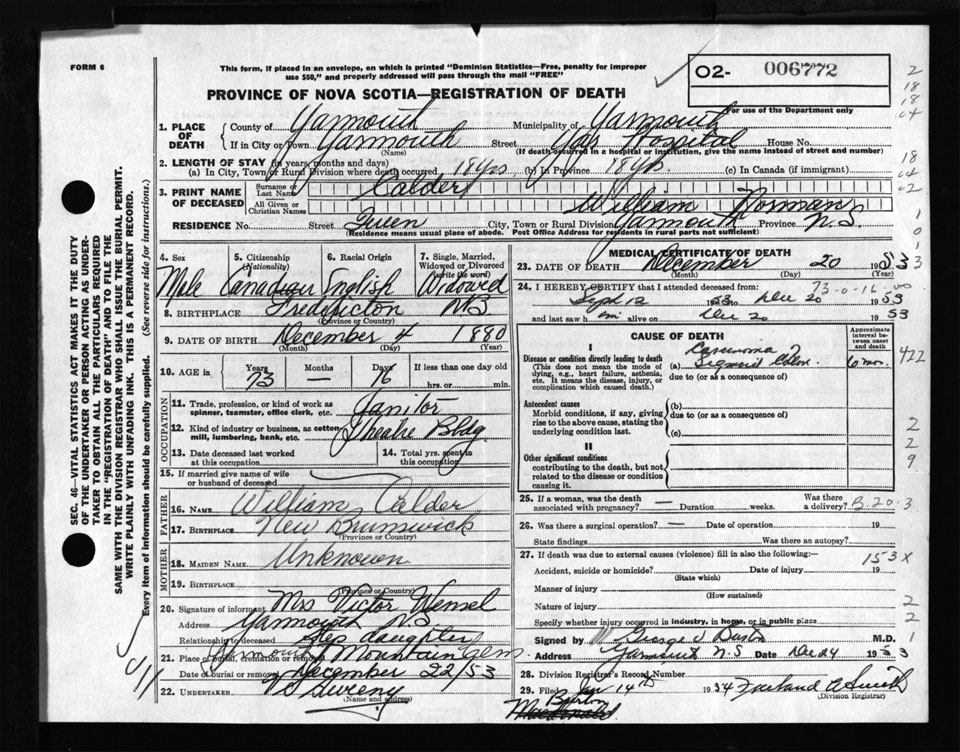 FORM 6
This form, if placed in an envelope, on which is printed "Dominion Statistics—Free, penalty for improper
use $50," and properly addressed will pass through the mail "FREE"
O2- 006772
PROVINCE OF NOVA SCOTIA—REGISTRATION OF DEATH
For use of the Department only
1. PLACE OF DEATH
County of Yarmouth Municipality of Yarmouth
If in City or Town Yarmouth Street Yar Hospital House No.
(Name) (If death occurred in a hospital or institution, give the name instead of street and number)
2. LENGTH OF STAY (in years, months and days)
(a) In City, Town or Rural Division where death occurred 18 yrs (b) In Province 18 yrs. (c) In Canada (if immigrant)
3. PRINT NAME OF DECEASED
Surname or Last Name Calder
All Given or Christian Names William Norman
RESIDENCE No. Street Queen City, Town or Rural Division Yarmouth Province N.S.
(Residence means usual place of abode. Post Office Address for residents in rural parts not sufficient)
4. Sex Male
5. Citizenship (Nationality) Canadian
6. Racial Origin English
7. Single, Married, Widowed or Divorced (write the word) Widowed
8. BIRTHPLACE Fredericton N.B.
(Province or Country)
9. DATE OF BIRTH December 4 1880
(Month) (Day) (Year)
10. AGE in Years 73 Months — Days 16 If less than one day old
hrs. or min.
OCCUPATION
11. Trade, profession, or kind of work as spinner, teamster, office clerk, etc. Janitor
12. Kind of industry or business, as cotton mill, lumbering, bank, etc. Theatre Bldg
13. Date deceased last worked at this occupation
14. Total yrs. spent in this occupation
15. If married give name of wife or husband of deceased
FATHER
16. NAME William Calder
17. BIRTHPLACE New Brunswick
(Province or Country)
MOTHER
18. MAIDEN NAME Unknown
19. BIRTHPLACE
(Province or Country)
20. Signature of informant Mrs Victor Wensel
Address Yarmouth N.S.
Relationship to deceased Step daughter
21. Place of burial, cremation or removal Yarmouth Mountain Cem.
Date of burial or removal December 22/53
22. UNDERTAKER V S Sweeny
(Name and address)
MEDICAL CERTIFICATE OF DEATH
23. DATE OF DEATH December 20 1953
(Month) (Day) (Year)
24. I HEREBY CERTIFY that I attended deceased from:
73-0-16
Sept 12 1953 to Dec 20 1953
and last saw him alive on Dec 20 1953
CAUSE OF DEATH
Approximate interval between onset and death
I
Disease or condition directly leading to death
(This does not mean the mode of dying, e.g., heart failure, asthenia, etc. It means the disease, injury, or complication which caused death.)
(a) Carcinoma Sigmoid Colon 6 mos.
due to (or as a consequence of)
Antecedent causes
Morbid conditions, if any, giving rise to the above cause, stating the underlying condition last.
(b)
due to (or as a consequence of)
(c)
II
Other significant conditions
contributing to the death, but not related to the disease or condition causing it.
25. If a woman, was the death associated with pregnancy? — Duration weeks. Was there a delivery?
B-20-3
26. Was there a surgical operation? — Date of operation 19
State findings Was there an autopsy?
27. If death was due to external causes (violence) fill in also the following:—
153X
Accident, suicide or homicide? Date of injury 19
(State which)
Manner of injury
(How sustained)
Nature of injury
Specify whether injury occurred in industry, in home, or in public place
Signed by George V Burton M.D.
Address Yarmouth N.S Date Dec 24 1953
28. Division Registrar's Record Number
29. Filed Jan 14th 1954
(Division Registrar)
Burton
Macdonald
SEC. 46—VITAL STATISTICS ACT MAKES IT THE DUTY
OF THE UNDERTAKER OR PERSON ACTING AS UNDER-
TAKER TO OBTAIN ALL THE PARTICULARS REQUIRED
IN THE "REGISTRATION OF DEATH" AND TO FILE THE
SAME WITH THE DIVISION REGISTRAR WHO SHALL ISSUE THE BURIAL PERMIT.
WRITE PLAINLY WITH UNFADING INK. THIS IS A PERMANENT RECORD.
Every item of information should be carefully supplied. (See reverse side for instructions.)
2
18
18
04
18
04
02
1
0
1
3
422
2
2
9
2
2
1
3